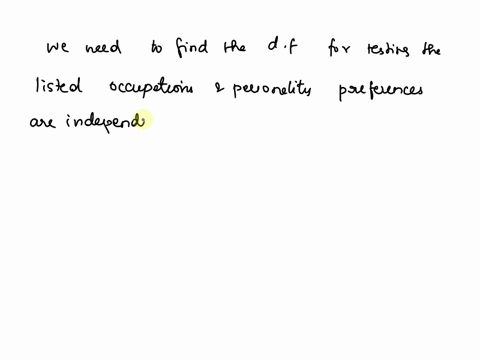 we need to find the d.f for testing the
listed occupations & personality preferences
are independ